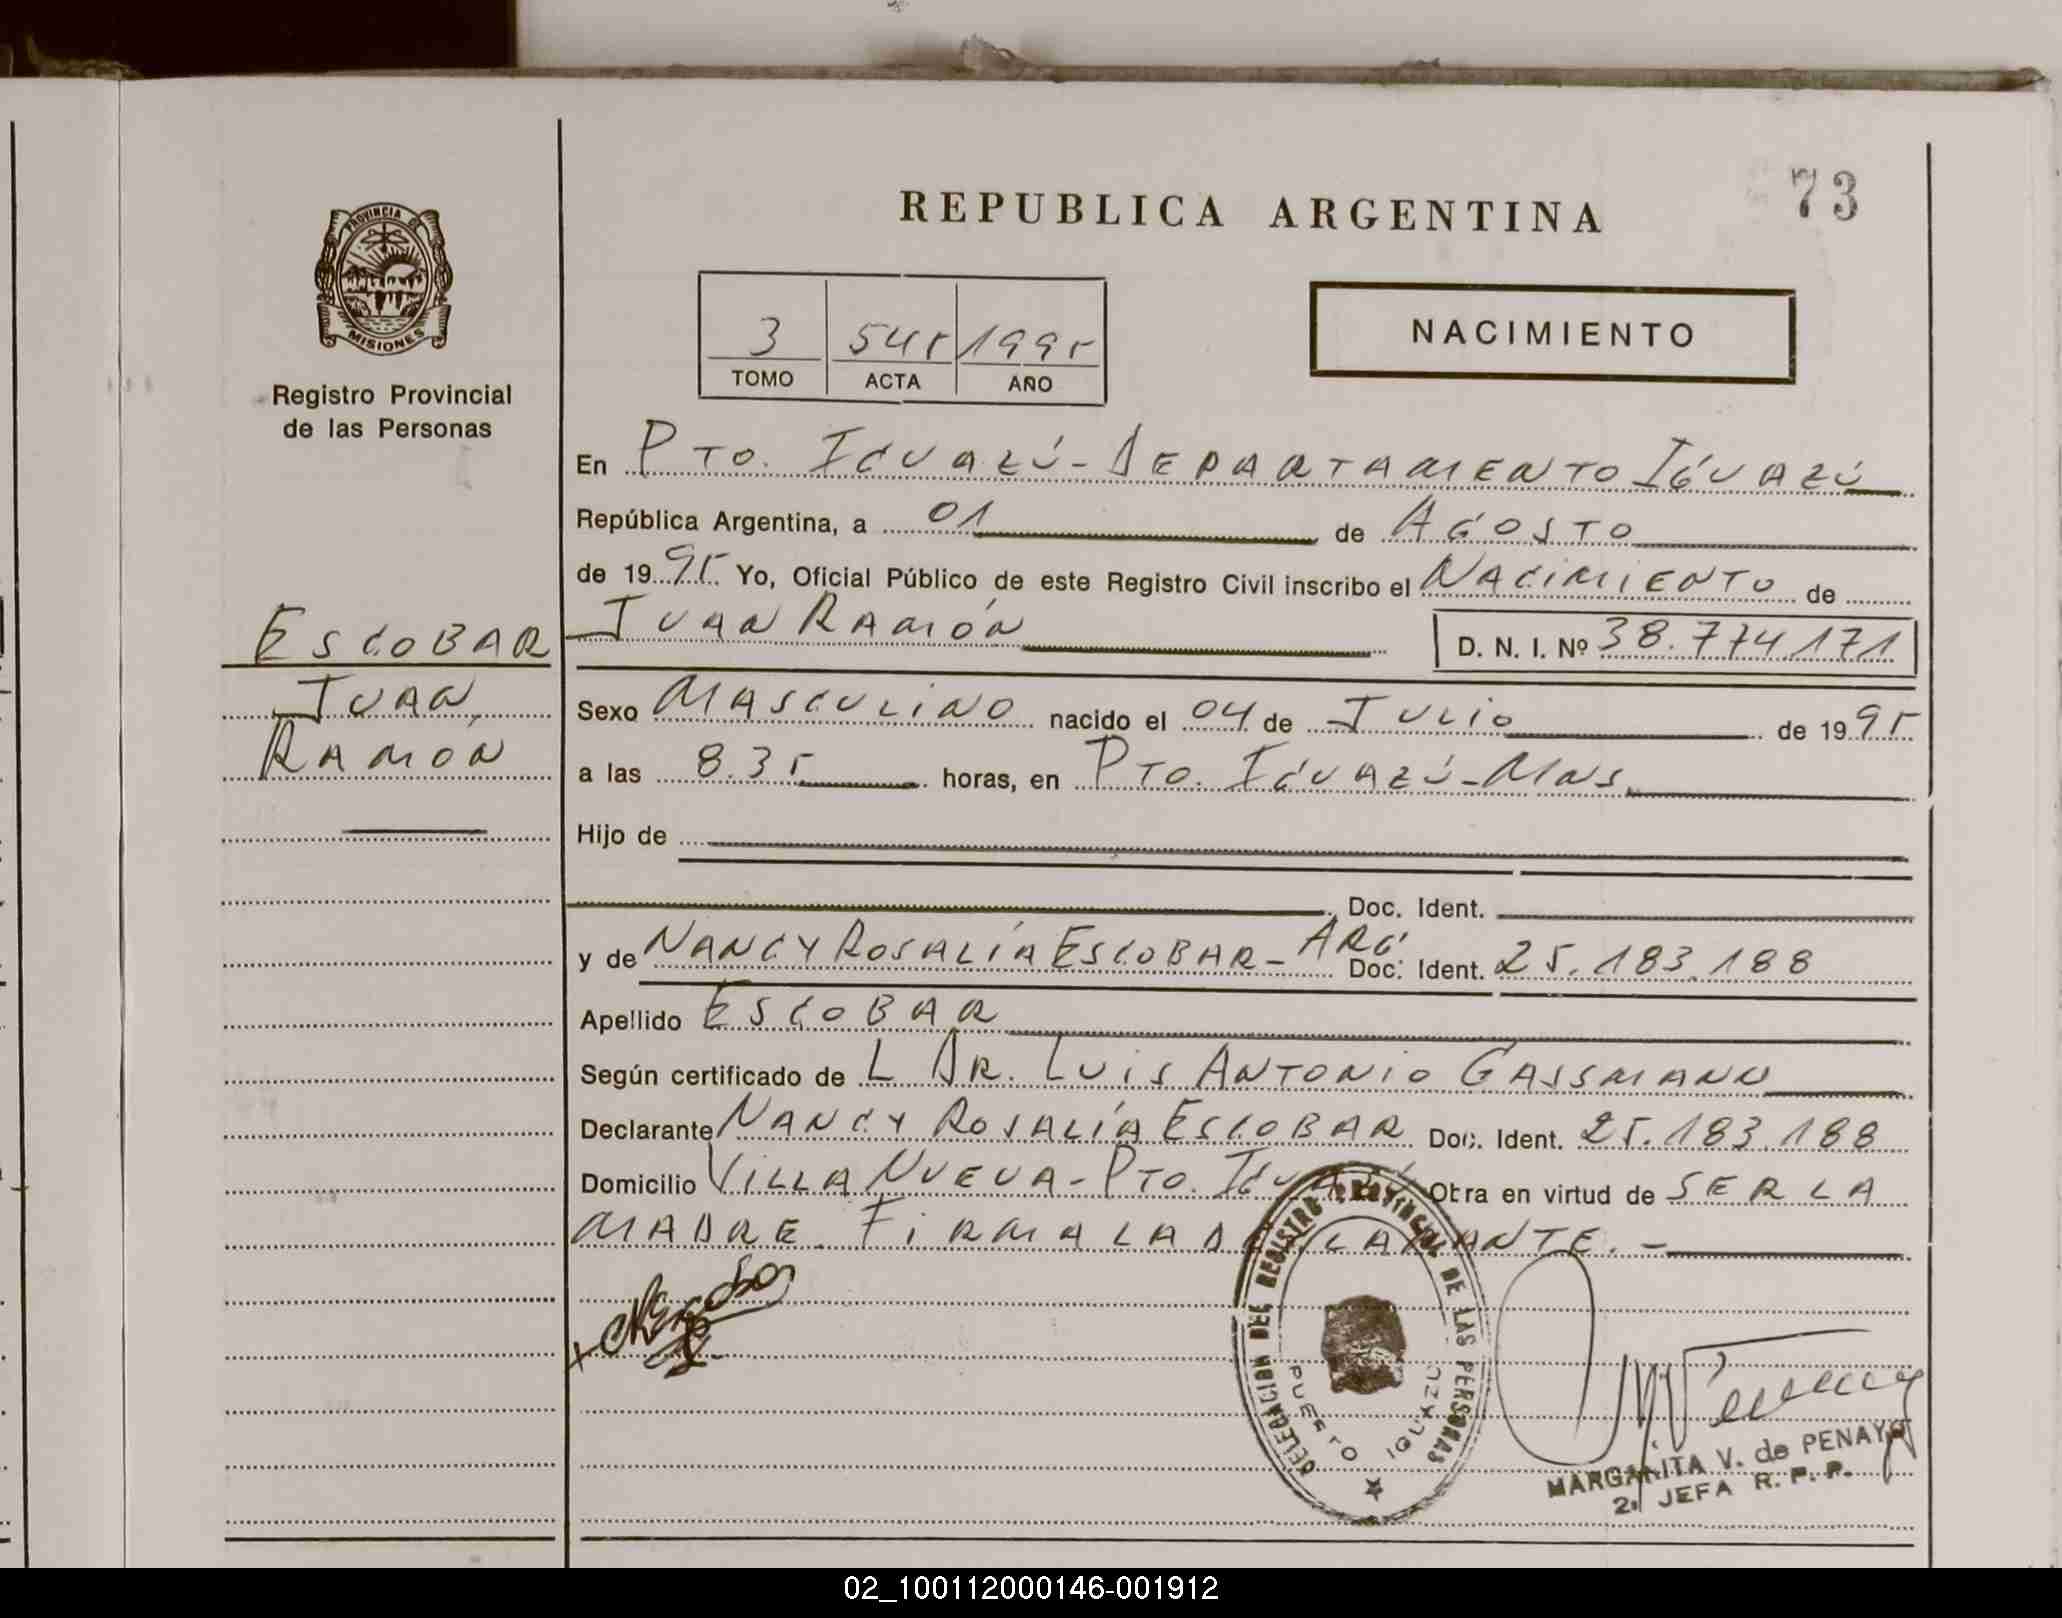 73
REPUBLICA ARGENTINA
PROVINCIA DE
MISIONES
Registro Provincial
de las Personas
3 545 1995
TOMO ACTA AÑO
NACIMIENTO
En Pto. Iguazú - Departamento Iguazú
República Argentina, a 01 de Agosto
de 1995 Yo, Oficial Público de este Registro Civil inscribo el Nacimiento de
Escobar
Juan
Ramón
Juan Ramón D. N. I. Nº 38.774.171
Sexo Masculino nacido el 04 de Julio de 1995
a las 8.35 horas, en Pto. Iguazú - Mns.
Hijo de
Doc. Ident.
y de Nancy Rosalía Escobar - Arg. Doc. Ident. 25.183.188
Apellido Escobar
Según certificado de L Dr. Luis Antonio Gassmann
Declarante Nancy Rosalía Escobar Doc. Ident. 25.183.188
Domicilio Villa Nueva - Pto. Iguazú Otra en virtud de ser la
madre. Firma la declarante. -
DELEGACION DEL REGISTRO PROVINCIAL DE LAS PERSONAS
PUERTO IGUAZU
MARGARITA V. de PENAYO
2ª JEFA R. P. P.
02_100112000146-001912